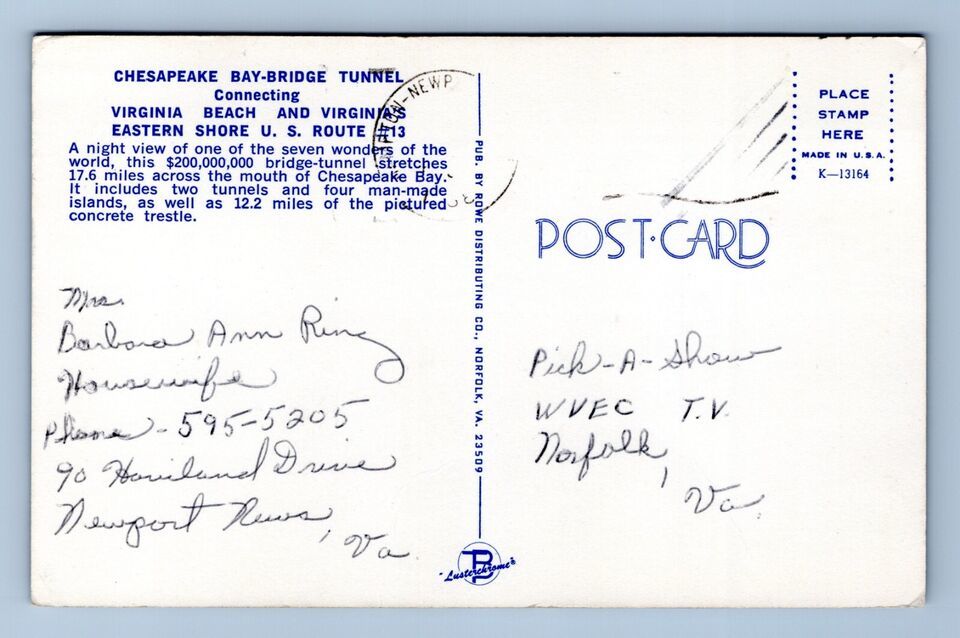 CHESAPEAKE BAY-BRIDGE TUNNEL
Connecting
VIRGINIA BEACH AND VIRGINIA'S
EASTERN SHORE U. S. ROUTE #13
A night view of one of the seven wonders of the
world, this $200,000,000 bridge-tunnel stretches
17.6 miles across the mouth of Chesapeake Bay.
It includes two tunnels and four man-made
islands, as well as 12.2 miles of the pictured
concrete trestle.
Mrs.
Barbara Ann Ring
Housewife
Phone - 595-5205
90 Haviland Drive
Newport News,
Va.
PUB. BY ROWE DISTRIBUTING CO., NORFOLK, VA. 23509
"Lusterchrome"
PLACE
STAMP
HERE
MADE IN U.S.A.
K—13164
POST·CARD
Pick-A-Show
WVEC T.V.
Norfolk,
Va.